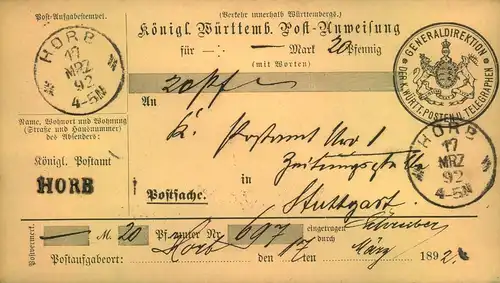 Post-Aufgabestempel.
(Verkehr innerhalb Württembergs.)
Königl. Württemb. Post-Anweisung
für — Mark 20 Pfennig
(mit Worten)
20 Pf
HORB
17
MRZ
92
4-5N
GENERALDIREKTION
DER K. WÜRTT. POSTEN U. TELEGRAPHEN
An
K. Postamt Nro 1
Zeitungsstelle
in Stuttgart
Name, Wohnort und Wohnung
(Straße und Hausnummer)
des Absenders:
Königl. Postamt
HORB
Postsache.
HORB
17
MRZ
92
4-5N
Postvermerk. — M. 20 Pf. unter Nr. 697 eingetragen durch Schreiber
Postaufgabeort: Horb den 17ten März 1892.